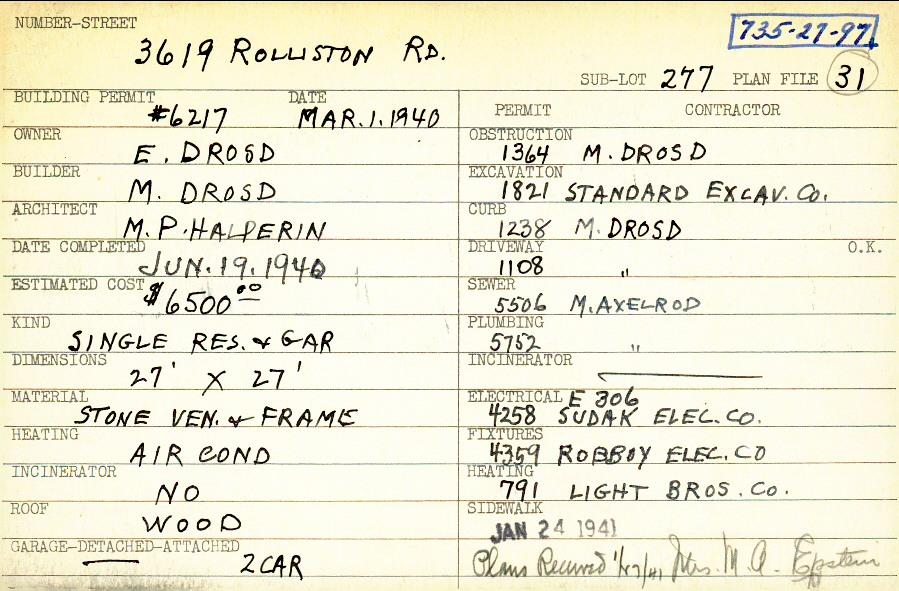 NUMBER-STREET
3619 ROLLISTON RD.
735-27-97
SUB-LOT 277 PLAN FILE 31
BUILDING PERMIT DATE
#6217 MAR.1.1940
OWNER
E. DROSD
BUILDER
M. DROSD
ARCHITECT
M.P. HALPERIN
DATE COMPLETED
JUN.19.1940
ESTIMATED COST
$6500.00
KIND
SINGLE RES. & GAR
DIMENSIONS
27' X 27'
MATERIAL
STONE VEN. & FRAME
HEATING
AIR COND
INCINERATOR
NO
ROOF
WOOD
GARAGE-DETACHED-ATTACHED
2 CAR
PERMIT CONTRACTOR
OBSTRUCTION
1364 M. DROSD
EXCAVATION
1821 STANDARD EXCAV. CO.
CURB
1238 M. DROSD
DRIVEWAY O.K.
1108 "
SEWER
5506 M. AXELROD
PLUMBING
5752 "
INCINERATOR
ELECTRICAL E 306
4258 SUDAK ELEC. CO.
FIXTURES
4359 ROBBOY ELEC. CO
HEATING
791 LIGHT BROS. CO.
SIDEWALK
JAN 24 1941
Plans Received Mrs. M. A. Epstein